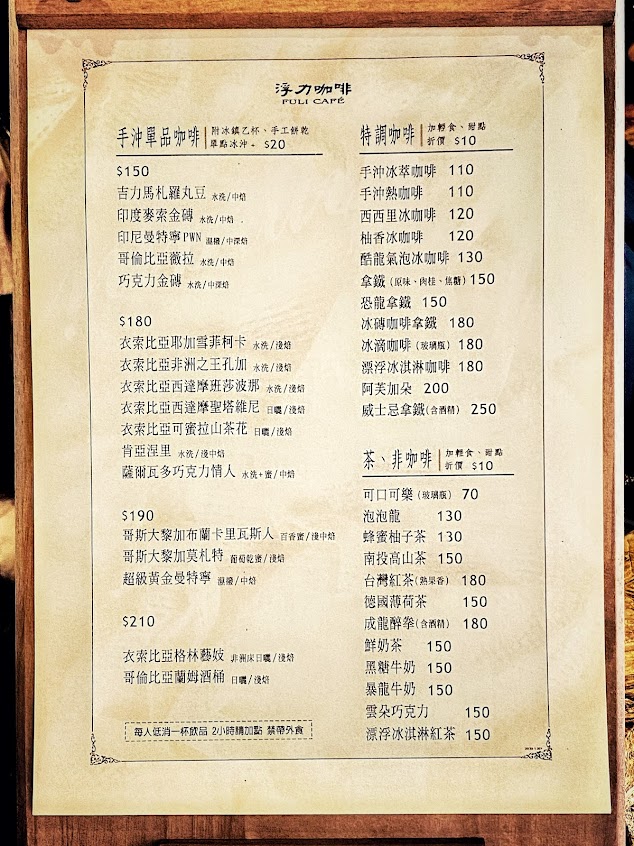 浮力咖啡
FULI CAFÉ
手沖單品咖啡
附冰鎮乙杯、手工餅乾
單點冰沖+ $20
$150
吉力馬札羅丸豆 水洗/中焙
印度麥索金磚 水洗/中焙
印尼曼特寧PWN 濕撥/中深焙
哥倫比亞薇拉 水洗/中焙
巧克力金磚 水洗/中深焙
$180
衣索比亞耶加雪菲柯卡 水洗/淺焙
衣索比亞非洲之王孔加 水洗/淺焙
衣索比亞西達摩班莎波那 水洗/淺焙
衣索比亞西達摩聖塔維尼 日曬/淺焙
衣索比亞可蜜拉山茶花 日曬/淺焙
肯亞涅里 水洗/淺中焙
薩爾瓦多巧克力情人 水洗+蜜/中焙
$190
哥斯大黎加布蘭卡里瓦斯人 百香蜜/淺中焙
哥斯大黎加莫札特 葡萄乾蜜/淺焙
超級黃金曼特寧 濕撥/中焙
$210
衣索比亞格林藝妓 非洲床日曬/淺焙
哥倫比亞蘭姆酒桶 日曬/淺焙
每人低消一杯飲品 2小時請加點 禁帶外食
特調咖啡
加輕食、甜點
折價 $10
手沖冰萃咖啡 110
手沖熱咖啡 110
西西里冰咖啡 120
柚香冰咖啡 120
酷龍氣泡冰咖啡 130
拿鐵(原味、肉桂、焦糖) 150
恐龍拿鐵 150
冰磚咖啡拿鐵 180
冰滴咖啡(玻璃瓶) 180
漂浮冰淇淋咖啡 180
阿芙加朵 200
威士忌拿鐵(含酒精) 250
茶、非咖啡
加輕食、甜點
折價 $10
可口可樂(玻璃瓶) 70
泡泡龍 130
蜂蜜柚子茶 130
南投高山茶 150
台灣紅茶(熟果香) 180
德國薄荷茶 150
成龍醉拳(含酒精) 180
鮮奶茶 150
黑糖牛奶 150
暴龍牛奶 150
雲朵巧克力 150
漂浮冰淇淋紅茶 150